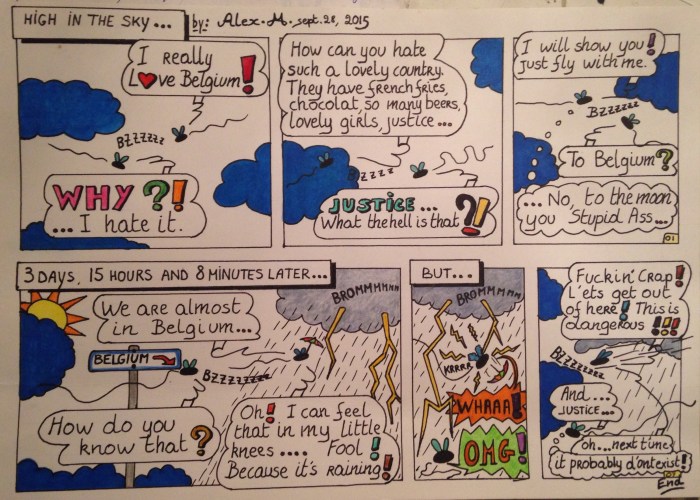 HIGH IN THE SKY...
by: Alex. M. sept. 28, 2015
I really
L♥ve Belgium!
BZZZZZZ
WHY ?!
... I hate it.
How can you hate
such a lovely country.
They have french fries,
chocolat, so many beers,
lovely girls, justice ...
BZZZZ
JUSTICE ...
What the hell is that ?!
I will show you!
Just fly with me.
BZZZZZZ
To Belgium?
... No, to the moon
you Stupid Ass ...
01
3 DAYS, 15 HOURS AND 8 MINUTES LATER...
We are almost
in Belgium...
BROMMMMMM
BELGIUM
BZZZZZZZZ
How do you
know that ?
Oh! I can feel
that in my little
knees .... Fool !
Because it's raining!
BUT...
BROMMMMM
KRRRR
WHAAA!
OMG!
Fuckin' Crap!
L'ets get out
of here! This is
dangerous !!!
BZZZZZZZZ
And ...
JUSTICE ...
oh...next time
it probably d'ont exist!
02
End